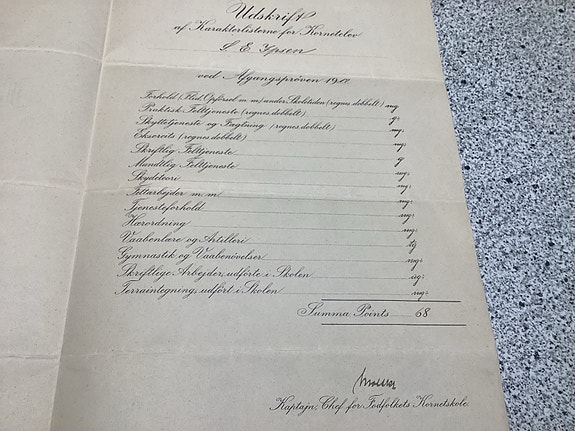 Udskrift
af Karakterlisterne for Kornetelev
S. E. Ypsen
ved Afgangsprøven 1917.
Forhold (Flid, Opførsel m. m) under Skoletiden (regnes dobbelt) mg
Praktisk Felttjeneste (regnes dobbelt) g÷
Skyttetjeneste og Fægtning (regnes dobbelt) mg÷
Eksercits (regnes dobbelt) mg
Skriftlig Felttjeneste mg÷
Mundtlig Felttjeneste g
Skydeteori mg÷
Feltarbejder m. m. mg÷
Tjenesteforhold mg÷
Hærordning mg÷
Vaabenlære og Artilleri tg
Gymnastik og Vaabenøvelser mg÷
Skriftlige Arbejder, udførte i Skolen ug÷
Terraintegning, udført i Skolen mg÷
Summa Points 68
Kaptajn, Chef for Fodfolkets Kornetskole.